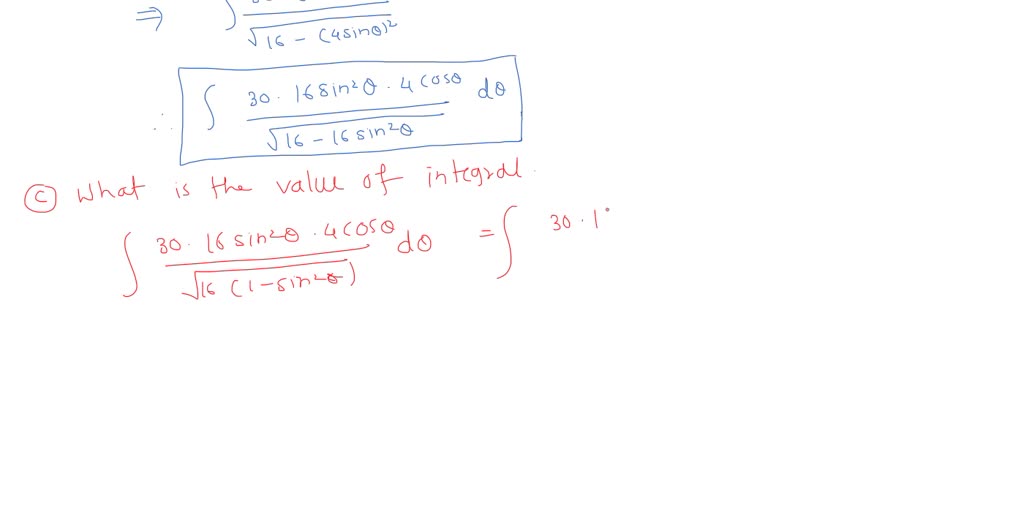 ⇒ ∫ / √16 - (4sinθ)²
∴ ∫ 30 · 16 sin²θ · 4 cosθ / √16 - 16 sin²θ dθ
(c) What is the value of integral.
∫ 30 · 16 sin²θ · 4 cosθ / √16 (1 - sin²θ) dθ = ∫ 30 · 1